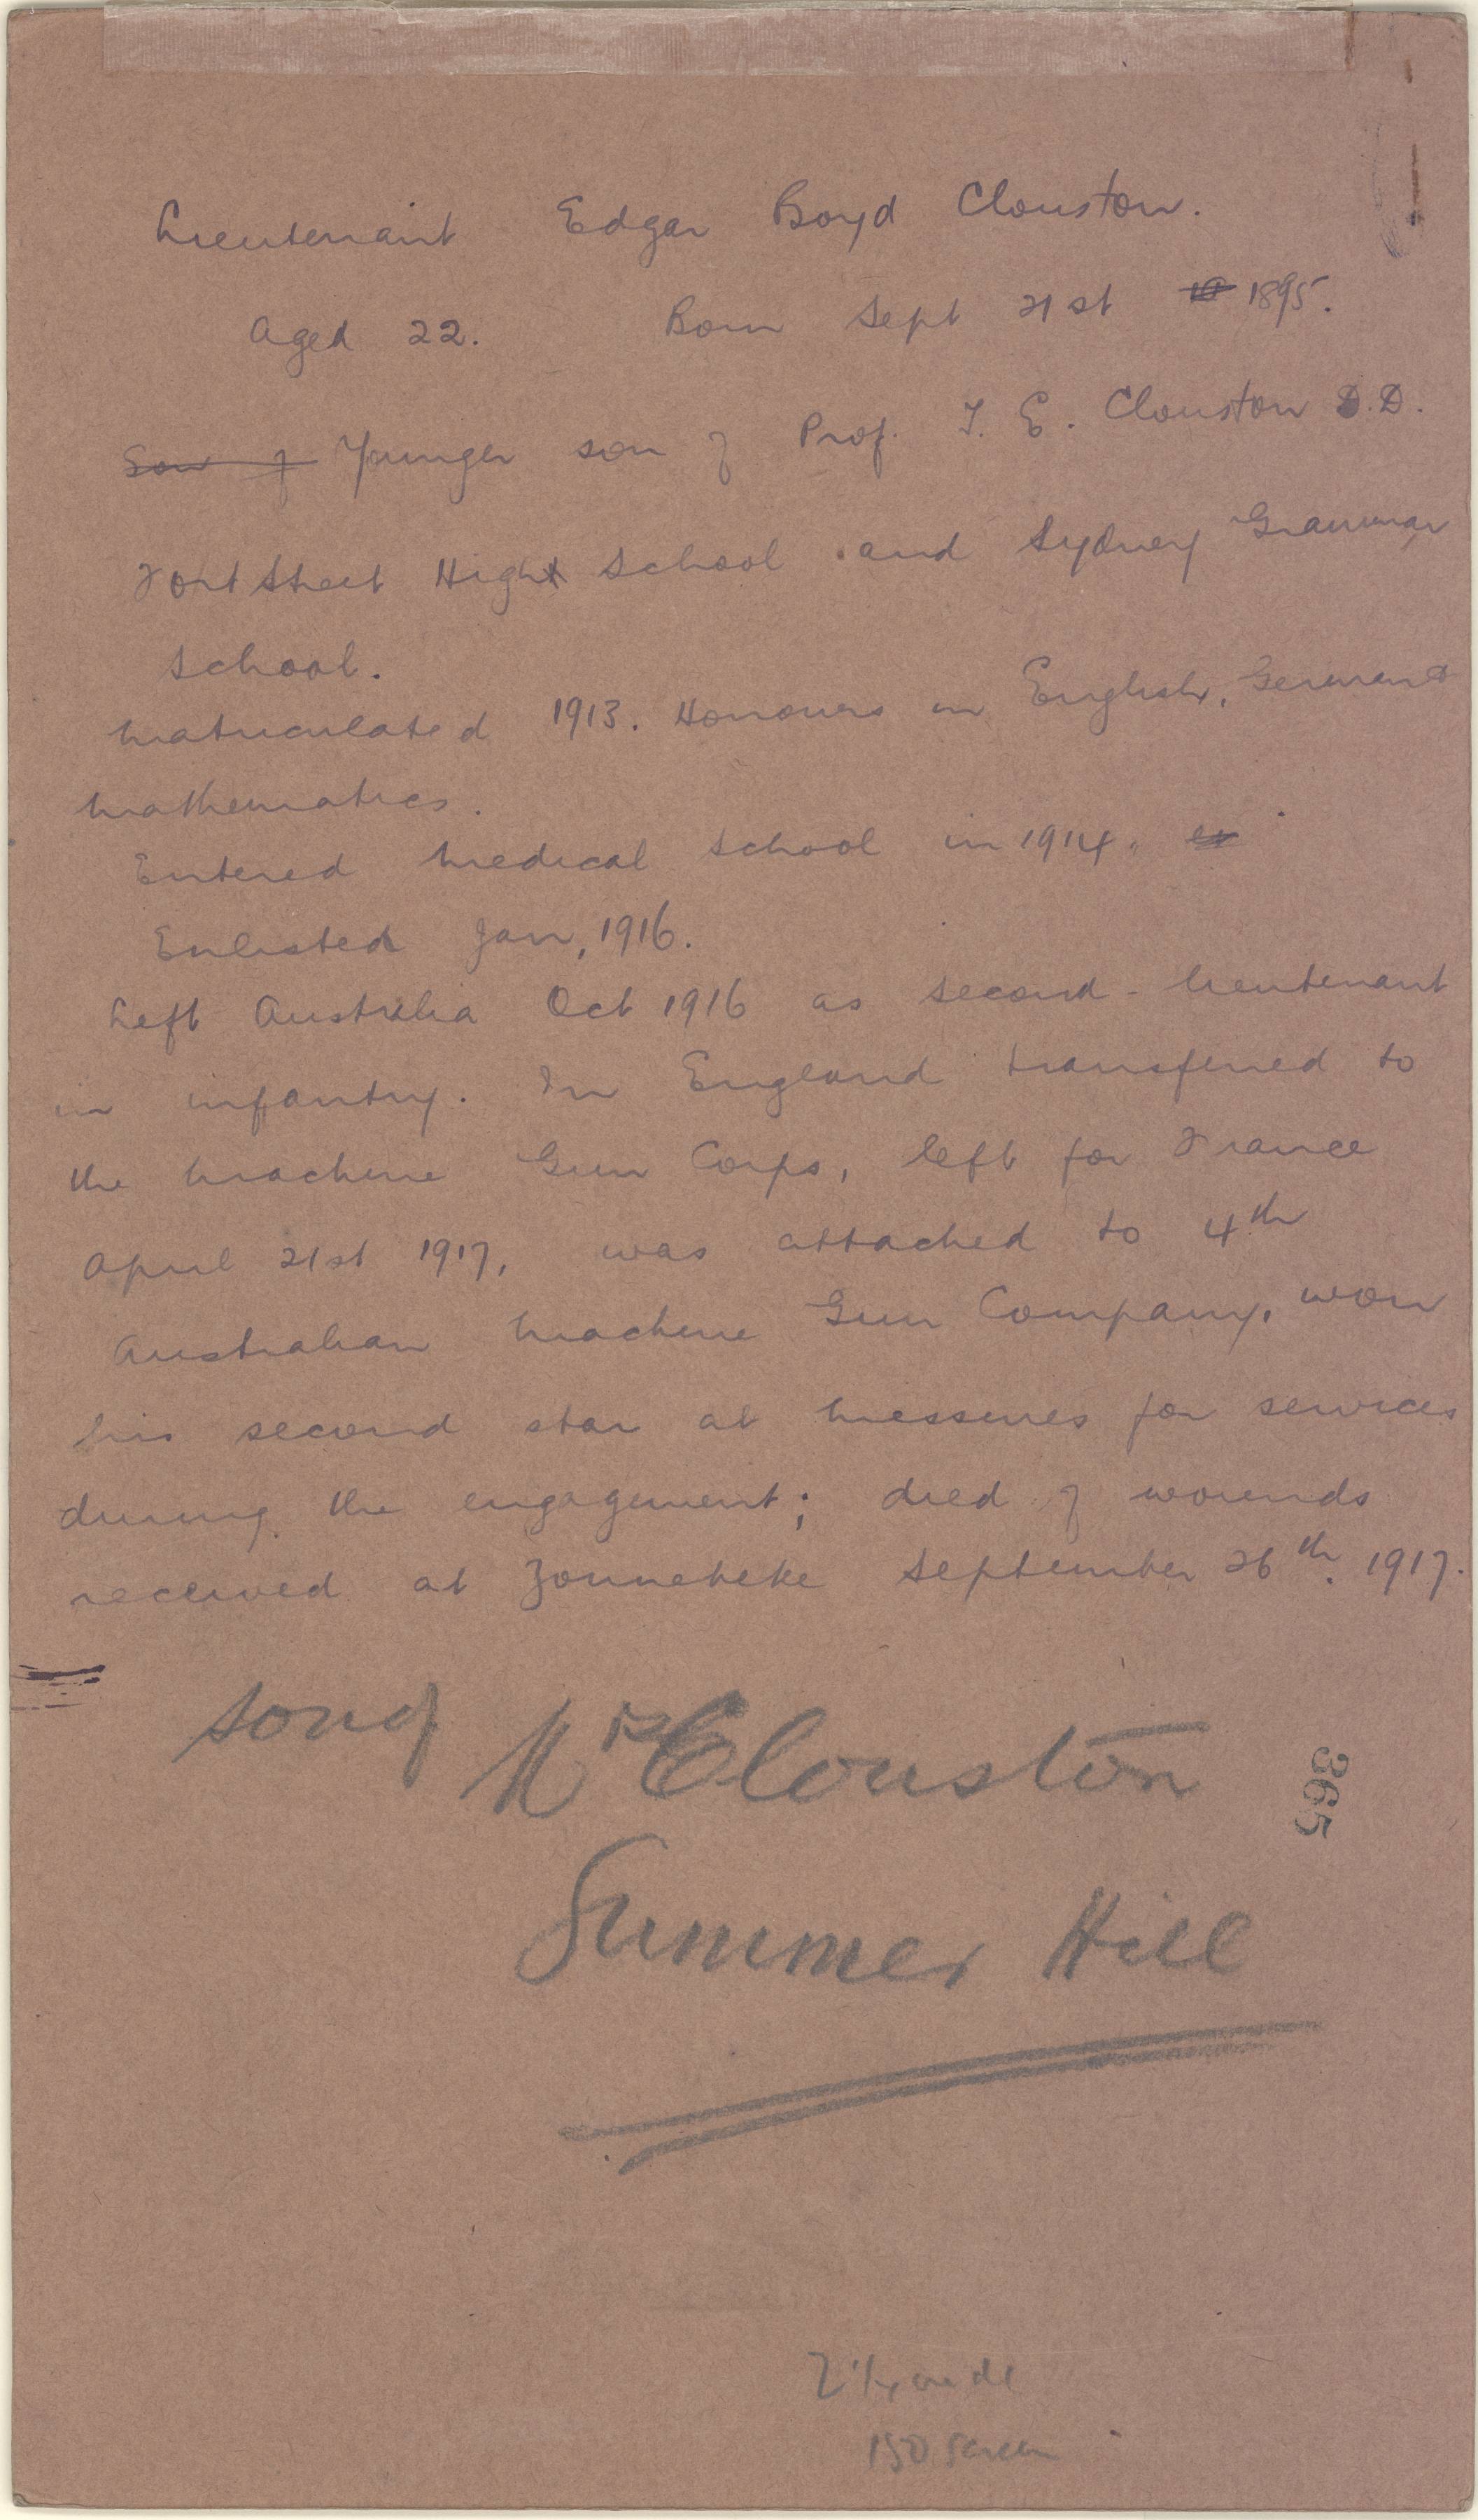 Lieutenant Edgar Boyd Clouston.
Aged 22. Born Sept 21st 1895.
Son of Younger son of Prof. T. E. Clouston D.D.
Fort Street High School and Sydney Grammar
School.
Matriculated 1913. Honours in English, German &
Mathematics.
Entered Medical School in 1914.
Enlisted Jan, 1916.
Left Australia Oct 1916 as second-lieutenant
in infantry. In England transferred to
the Machine Gun Corps, left for France
April 21st 1917, was attached to 4th
Australian Machine Gun Company, won
his second star at Messines for services
during the engagement; died of wounds
received at Zonnebeke September 26th. 1917.
son of Mr Clouston
365
Summer Hill
2 1/4 wide
150 screen